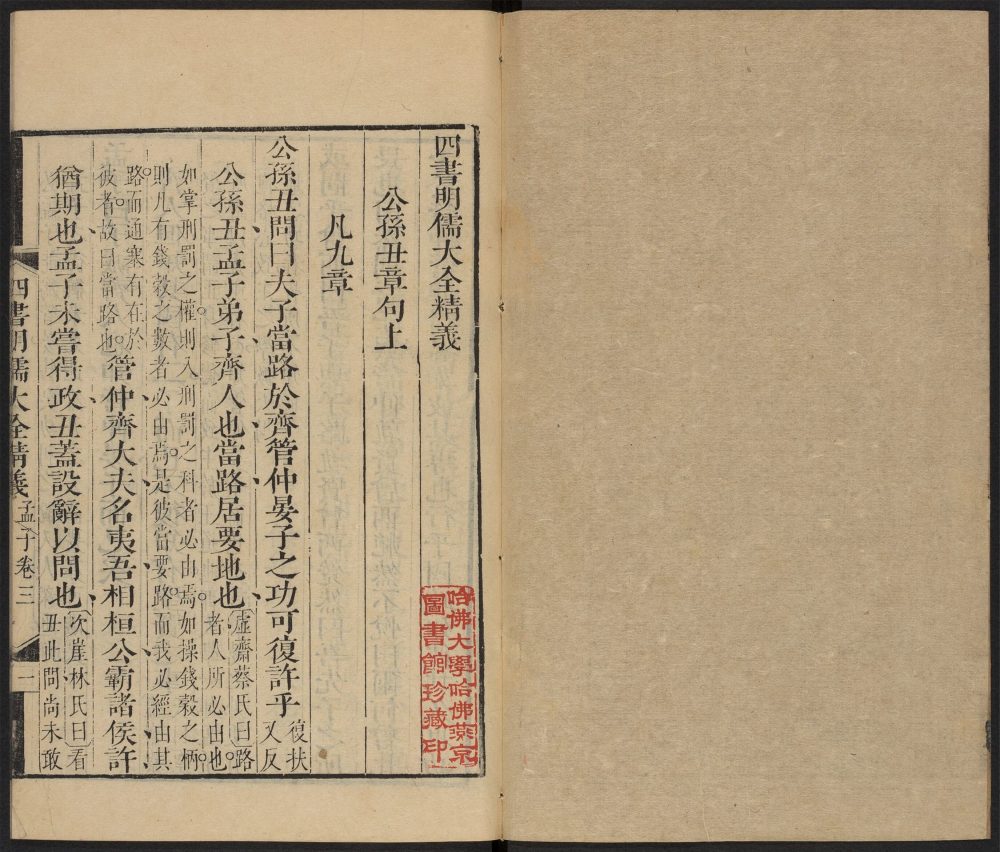 四書明儒大全精義
公孫丑章句上
凡九章
公孫丑問曰夫子當路於齊管仲晏子之功可復許乎復扶
又反
公孫丑孟子弟子齊人也當路居要地也虛齋蔡氏曰路
者人所必由也
如掌刑罰之權則入刑罰之科者必由焉如操錢穀之柄
則凡有錢穀之數者必由焉是彼當要路而我必經由其
路而通塞有在於
彼者故曰當路也管仲齊大夫名夷吾相桓公霸諸侯許
猶期也孟子未嘗得政丑蓋設辭以問也次崖林氏曰看
丑此問尚未敢
四書明儒大全精義 孟子卷三 一
哈佛大學哈佛燕京
圖書館珍藏印